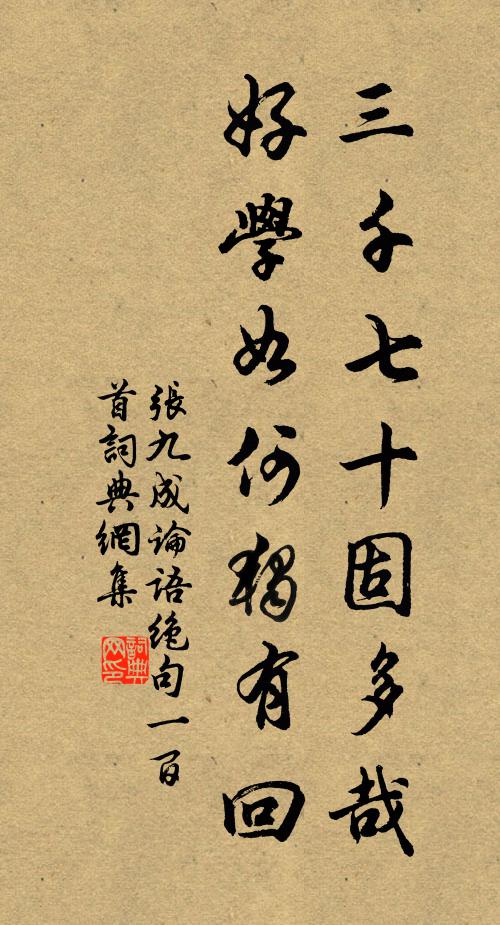 三千七十固多哉
好學如何獨有回
張九成論語絶句一百
首詞典網集
詞典
网印